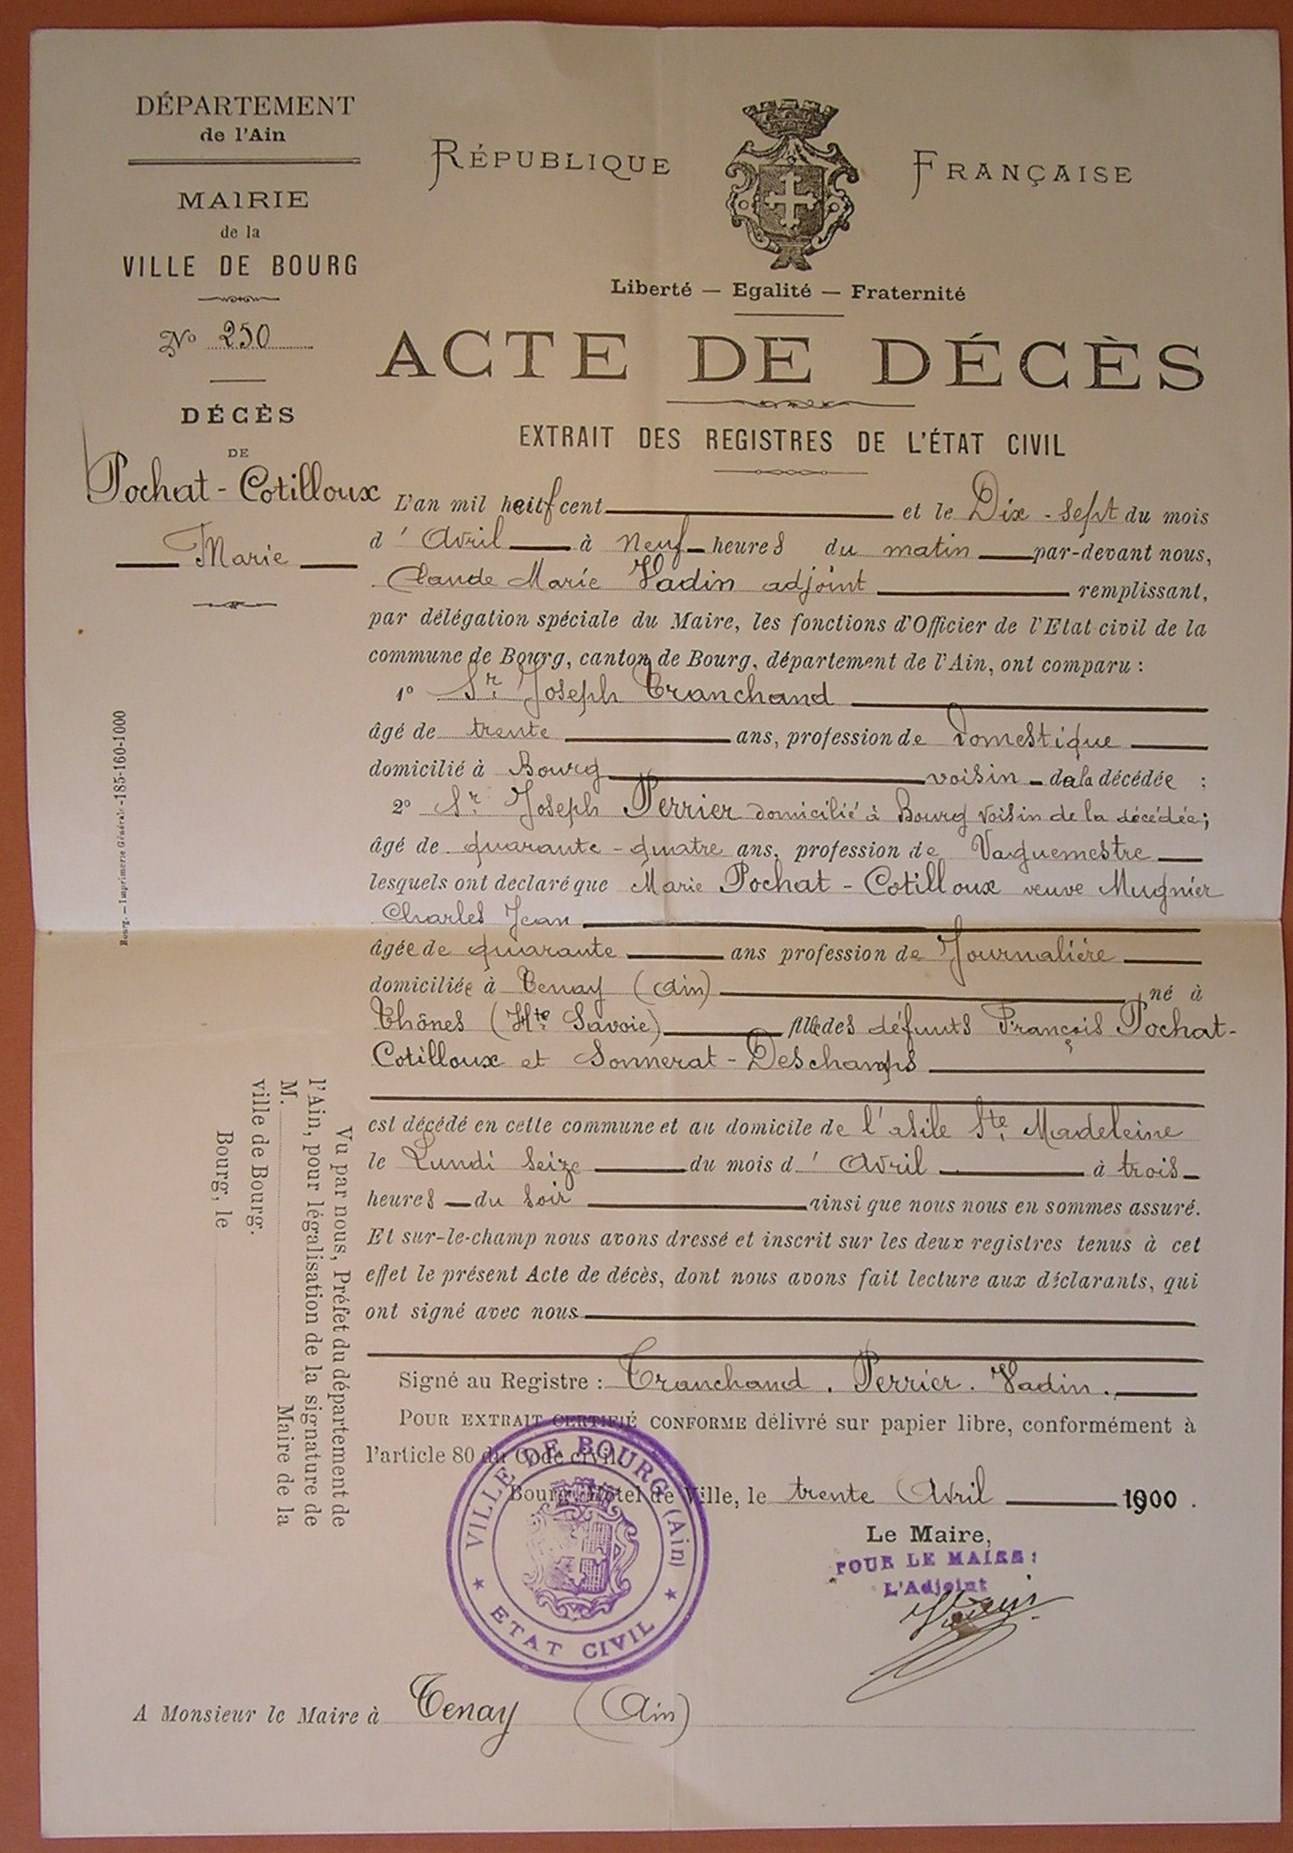 DÉPARTEMENT
de l'Ain
MAIRIE
de la
VILLE DE BOURG
No 250
DÉCÈS
DE
Pochat - Cotilloux
Marie
RÉPUBLIQUE FRANÇAISE
Liberté — Egalité — Fraternité
ACTE DE DÉCÈS
EXTRAIT DES REGISTRES DE L'ÉTAT CIVIL
L'an mil cent et le Dix - sept du mois
d' Avril à neuf heures du matin par-devant nous,
Claude Marie Vadin adjoint remplissant,
par délégation spéciale du Maire, les fonctions d'Officier de l'Etat civil de la
commune de Bourg, canton de Bourg, département de l'Ain, ont comparu :
1o Sr. Joseph Tranchand
âgé de trente ans, profession de Domestique
domicilié à Bourg voisin de la décédée :
2o Sr. Joseph Perrier domicilié à Bourg voisin de la décédée;
âgé de quarante - quatre ans, profession de Vaguemestre
lesquels ont declaré que Marie Pochat - Cotilloux veuve Mugnier
Charles Jean
âgée de quarante ans profession de Journalière
domiciliée à Tenay (Ain) né à
Thônes (Hte. Savoie) fille des défunts François Pochat-
Cotilloux et Sonnerat - Deschamps
est décédé en cette commune et au domicile de l'asile Ste. Madeleine
le Lundi seize du mois d' Avril à trois
heures du soir ainsi que nous nous en sommes assuré.
Et sur-le-champ nous avons dressé et inscrit sur les deux registres tenus à cet
effet le présent Acte de décès, dont nous avons fait lecture aux déclarants, qui
ont signé avec nous
Signé au Registre : Tranchand. Perrier. Vadin.
POUR EXTRAIT CERTIFIÉ CONFORME délivré sur papier libre, conformément à
l'article 80 du Code civil.
Bourg, Hôtel de Ville, le trente Avril 1900.
Le Maire,
POUR LE MAIRE :
L'Adjoint
VILLE DE BOURG (Ain)
ETAT CIVIL
A Monsieur le Maire à Tenay (Ain)
Bourg. — Imprimerie Générale -185-160-1000
Vu par nous, Préfet du département de
l'Ain, pour légalisation de la signature de
M. Maire de la
ville de Bourg.
Bourg, le